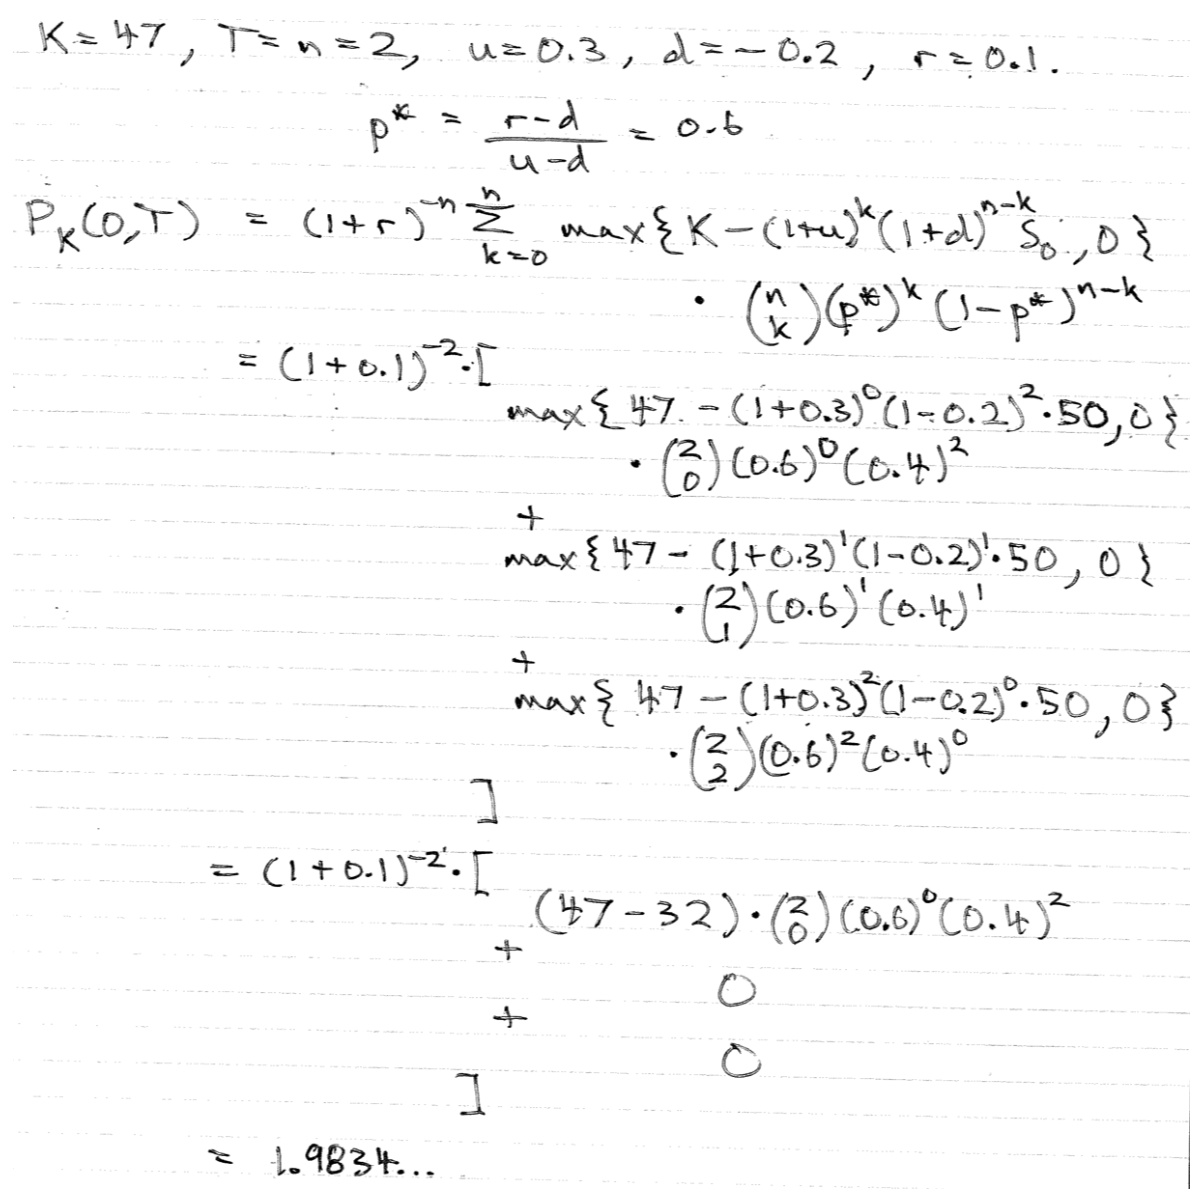 K = 47, T = n = 2, u = 0.3, d = -0.2, r = 0.1.
p* = (r-d)/(u-d) = 0.6
P_K(0,T) = (1+r)^{-n} Σ_{k=0}^{n} max{K-(1+u)^k(1+d)^{n-k} S_0, 0}
· (n k)(p*)^k (1-p*)^{n-k}
= (1+0.1)^{-2}·[
max{47 - (1+0.3)^0(1-0.2)^2·50, 0}
· (2 0)(0.6)^0(0.4)^2
+
max{47 - (1+0.3)^1(1-0.2)^1·50, 0}
· (2 1)(0.6)^1(0.4)^1
+
max{47 - (1+0.3)^2(1-0.2)^0·50, 0}
· (2 2)(0.6)^2(0.4)^0
]
= (1+0.1)^{-2}·[
(47-32)·(2 0)(0.6)^0(0.4)^2
+
0
+
0
]
= 1.9834...